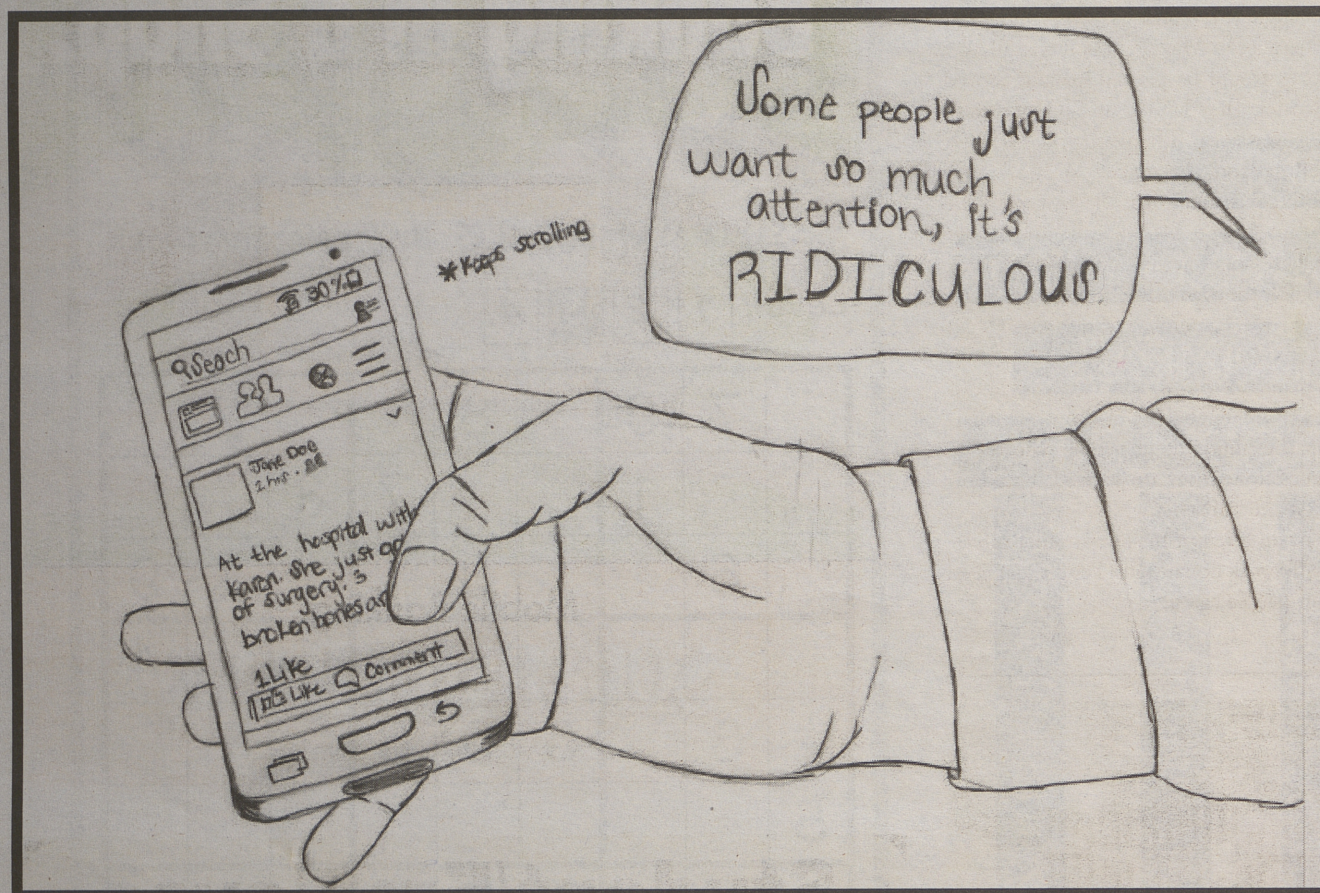 Some people just
want so much
attention, it's
RIDICULOUS.
*Keeps scrolling
30%
Seach
Jane Doe
2 hrs.
At the hospital with
Karen. She just go
of surgery. 3
broken bones an
1 Like
Like Comment